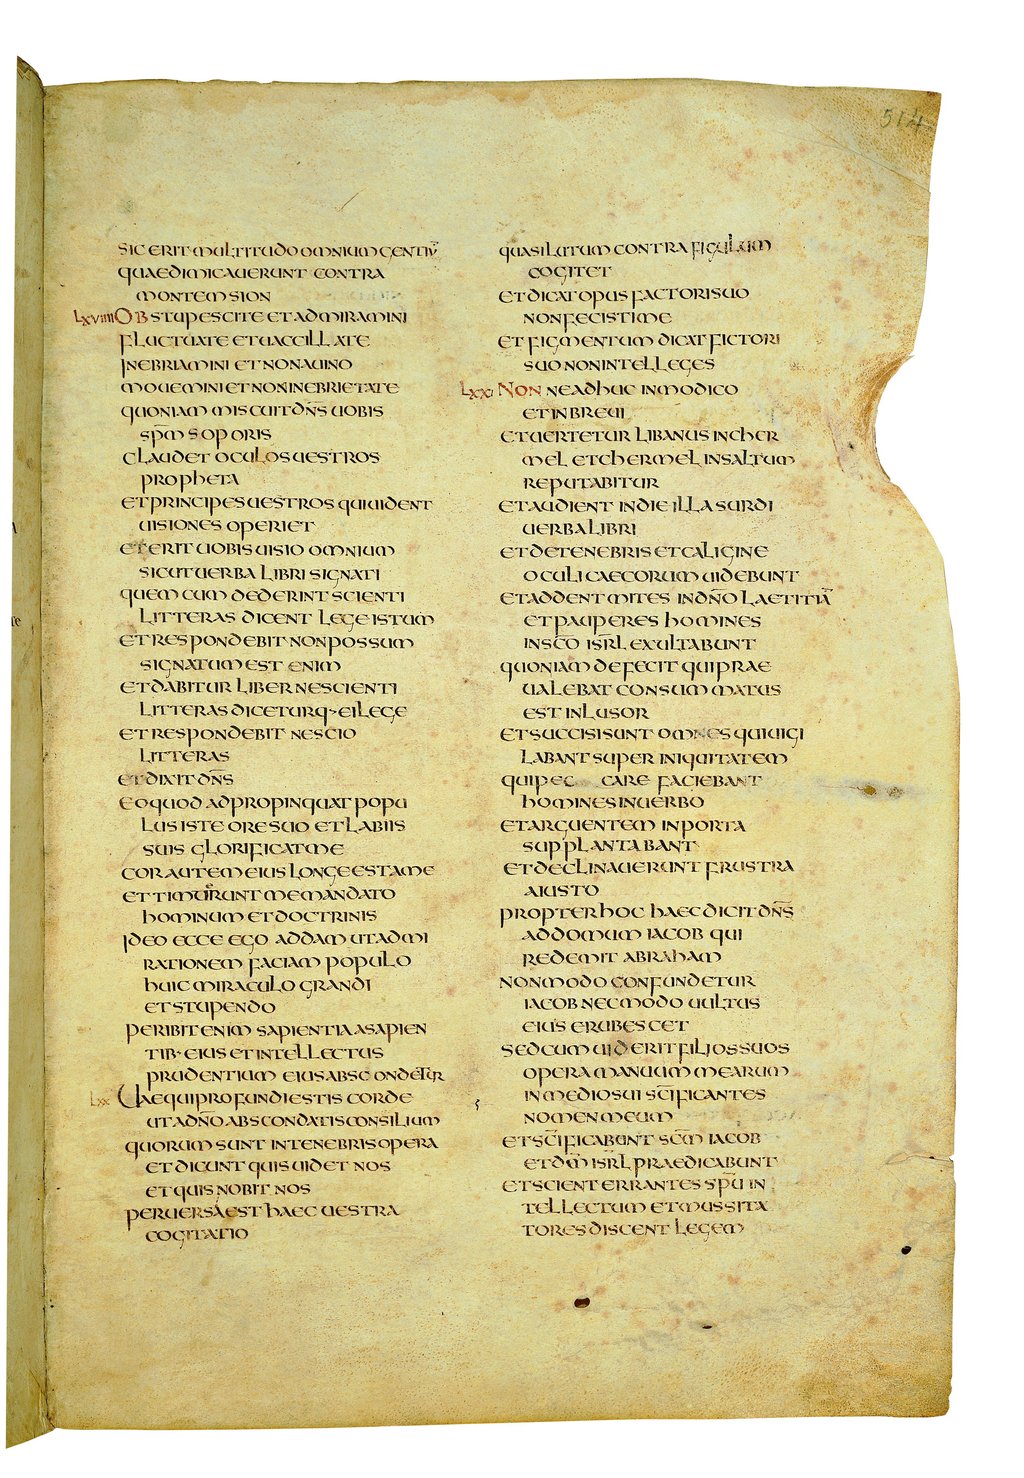 514
SIC ERIT MULTITUDO OMNIUM GENTIŪ
QUAE DIMICAVERUNT CONTRA
MONTEM SION
LXVIIII OBSTUPESCITE ET ADMIRAMINI
FLUCTUATE ET UACCILLATE
INEBRIAMINI ET NON A UINO
MOUEMINI ET NON INEBRIETATE
QUONIAM MISCUIT DN̄S UOBIS
SPM̄ SOPORIS
CLAUDET OCULOS UESTROS
PROPHETA
ET PRINCIPES UESTROS QUI UIDENT
UISIONES OPERIET
ET ERIT UOBIS UISIO OMNIUM
SICUT UERBA LIBRI SIGNATI
QUEM CUM DEDERINT SCIENTI
LITTERAS DICENT LEGE ISTUM
ET RESPONDEBIT NON POSSUM
SIGNATUM EST ENIM
ET DABITUR LIBER NESCIENTI
LITTERAS DICETURQ· EI LEGE
ET RESPONDEBIT NESCIO
LITTERAS
ET DIXIT DN̄S
EO QUOD ADPROPINQUAT POPU
LUS ISTE ORE SUO ET LABIIS
SUIS GLORIFICAT ME
COR AUTEM EIUS LONGE EST A ME
ET TIMUERUNT ME MANDATO
HOMINUM ET DOCTRINIS
IDEO ECCE EGO ADDAM UT ADMI
RATIONEM FACIAM POPULO
HUIC MIRACULO GRANDI
ET STUPENDO
PERIBIT ENIM SAPIENTIA A SAPIEN
TIB· EIUS ET INTELLECTUS
PRUDENTIUM EIUS ABSCONDETUR
LXX UAE QUI PROFUNDI ESTIS CORDE
UT A DN̄O ABSCONDATIS CONSILIUM
QUORUM SUNT IN TENEBRIS OPERA
ET DICUNT QUIS UIDET NOS
ET QUIS NOBIT NOS
PERUERSA EST HAEC UESTRA
COGITATIO
QUASI LUTUM CONTRA FIGULUM
COGITET
ET DICAT OPUS FACTORI SUO
NON FECISTI ME
ET FIGMENTUM DICAT FICTORI
SUO NON INTELLEGES
LXXI NONNE ADHUC IN MODICO
ET IN BREUI
ET UERTETUR LIBANUS IN CHER
MEL ET CHERMEL IN SALTUM
REPUTABITUR
ET AUDIENT IN DIE ILLA SURDI
UERBA LIBRI
ET DE TENEBRIS ET CALIGINE
OCULI CAECORUM UIDEBUNT
ET ADDENT MITES IN DN̄O LAETITIĀ
ET PAUPERES HOMINES
IN SC̄O ISRL̄ EXULTABUNT
QUONIAM DEFECIT QUI PRAE
UALEBAT CONSUMMATUS
EST INLUSOR
ET SUCCISI SUNT OMNES QUI UIGI
LABANT SUPER INIQUITATEM
QUI PEC CARE FACIEBANT
HOMINES IN UERBO
ET ARGUENTEM IN PORTA
SUPPLANTABANT
ET DECLINAUERUNT FRUSTRA
A IUSTO
PROPTER HOC HAEC DICIT DN̄S
AD DOMUM IACOB QUI
REDEMIT ABRAHAM
NON MODO CONFUNDETUR
IACOB NEC MODO UULTUS
EIUS ERUBESCET
SED CUM UIDERIT FILIOS SUOS
OPERA MANUUM MEARUM
IN MEDIO SUI SC̄IFICANTES
NOMEN MEUM
ET SC̄IFICABUNT SC̄M IACOB
ET DM̄ ISRL̄ PRAEDICABUNT
ET SCIENT ERRANTES SPŪ IN
TELLECTUM ET MUSSITA
TORES DISCENT LEGEM